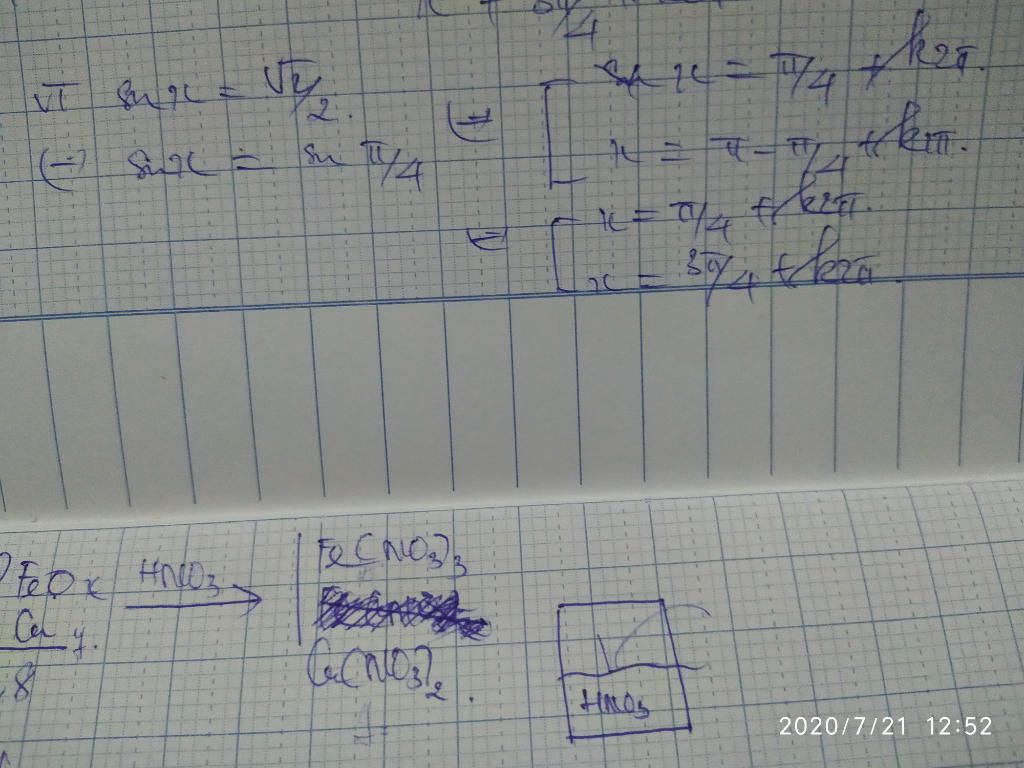 sin x = √2/2.
(=) sin x = sin π/4
(=) x = π/4 + k2π.
x = π - π/4 + k2π.
(=) x = π/4 + k2π.
x = 3π/4 + k2π.
FeO x HNO3 Fe(NO3)3
Cu y.
Cu(NO3)2.
HNO3
2020/7/21 12:52